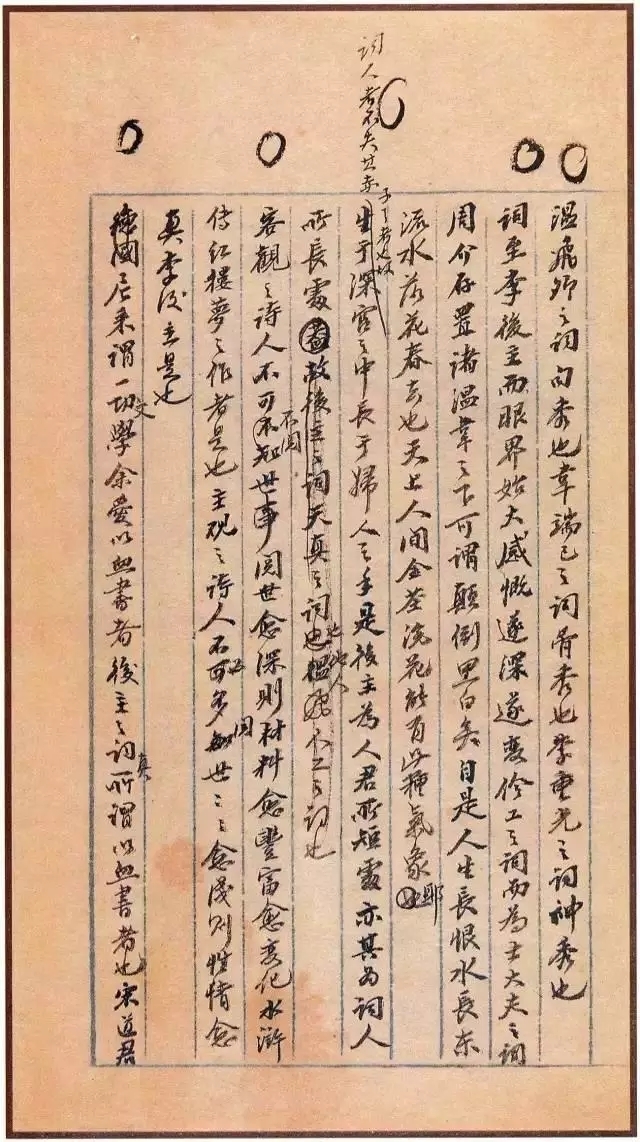 溫飛卿之詞句秀也韋端己之詞骨秀也李重光之詞神秀也
詞至李後主而眼界始大感慨遂深遂變伶工之詞而為士大夫之詞
周介存置諸溫韋之下可謂顛倒黑白矣自是人生長恨水長東
流水落花春去也天上人間金荃浣花能有此種氣象也耶
詞人者不失其赤子之心者也故
生于深宮之中長于婦人之手是後主為人君所短處亦其為詞人
所長處者故後主之詞天真之詞也他人人工之詞也
客觀之詩人不可不知不閱世事閱世愈深則材料愈豐富愈變化水滸
傳紅樓夢之作者是也主觀之詩人不必多閱世〻〻愈淺則性情愈
真李後主是也
德國尼采謂一切文學余愛以血書者後主之詞真所謂以血書者也宋道君